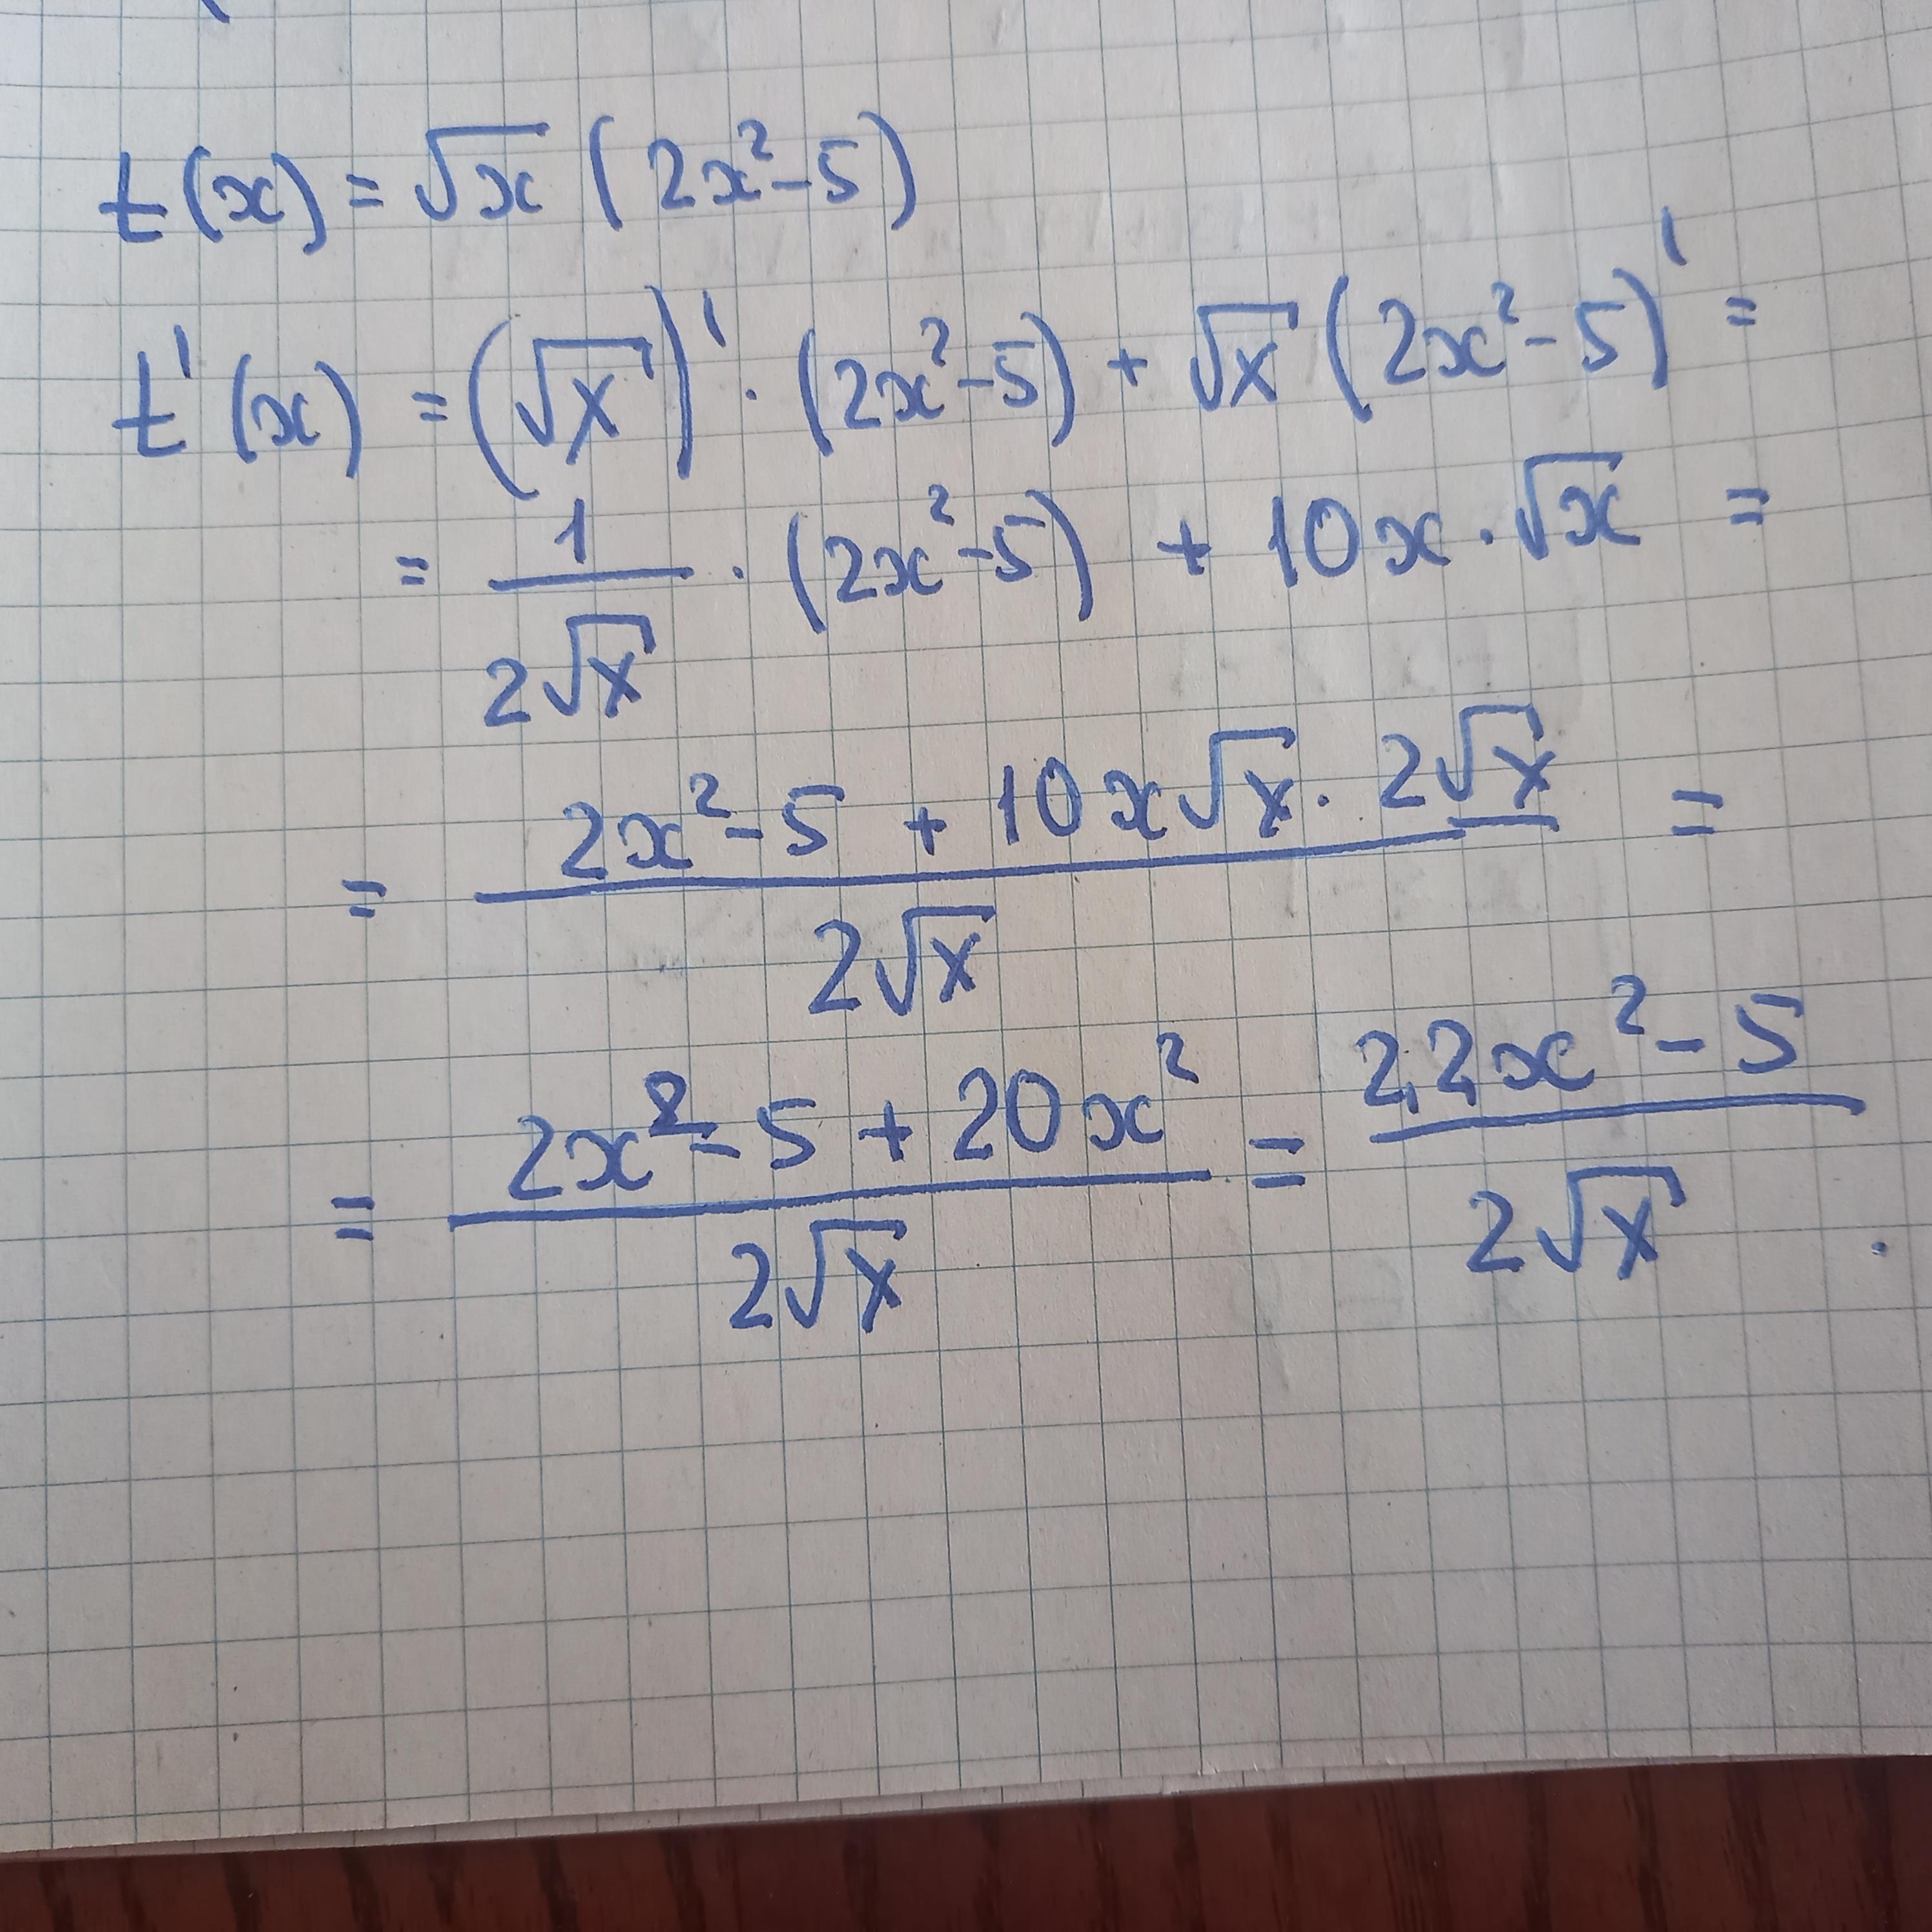 t(x) = √x (2x² - 5)
t'(x) = (√x)' · (2x² - 5) + √x (2x² - 5)' =
= 1/(2√x) · (2x² - 5) + 10x · √x =
= (2x² - 5 + 10x√x · 2√x)/(2√x) =
= (2x² - 5 + 20x²)/(2√x) = (22x² - 5)/(2√x) .